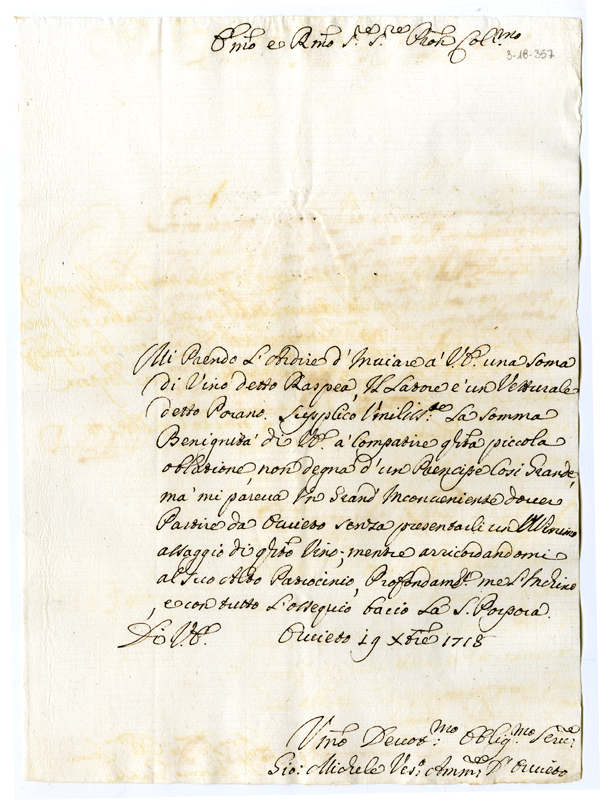 Emo e Rmo Sre Sre Pron Colmo
3-18-357
Mi Prendo L'Ardire d'Inviare a' V.E. una Soma
di Vino detto Raspea, Il Latore è un Vetturale
detto Porano. Supplico Umiliss.te La Somma
Benignità di V.E. a' Compatire qsta piccola
oblatione, non degna d'un Prencipe Cosi Grande,
ma' mi pareva Un Grand' Inconveniente dover
Partire da Orvieto senza presentarli un Minimo
assaggio di qsto Vino; mentre arricordandomi
al suo Alto Patrocinio, Profondamte me l'Inchino
e con tutto L'ossequio bacio La S. Porpora.
Di V.E. Orvieto 19 Xbre 1718
Umo Devot.mo Oblig.mo Serre
Gio: Michele Ves.o Amm.re d'Orvieto